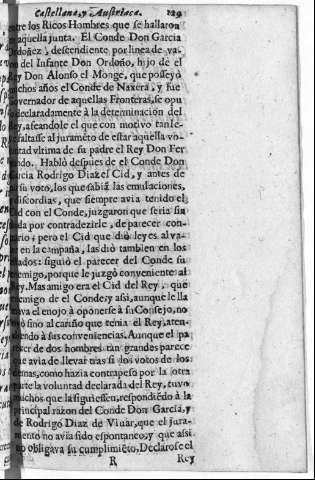 Castellana, y Austriaca. 129
entre los Ricos Hombres que se hallaron
aquella junta. El Conde Don Garcia
Ordoñez, descendiente por linea de va-
del Infante Don Ordoño, hijo de el
Rey Don Alonso el Monge, que posseyò
muchos años el Conde de Naxera, y fue
Governador de aquellas Fronteras, se opu
declaradamente à la determinacion del
Rey, afeandole el que con motivo tan le-
faltasse al juramẽto de estar aquella vo-
luntad vltima de su padre el Rey Don Fer
nando. Hablò despues de el Conde Don
Garcia Rodrigo Diaz el Cid, y antes de
su voto, los que sabiã las emulaciones,
discordias, que siempre avia tenido el
Cid con el Conde, juzgaron que seria sin
por contradezirle, de parecer con-
trario; pero el Cid que diò leyes al va-
en la campaña, las diò tambien en los
siguiò el parecer del Conde su
enemigo, porque le juzgò conveniente al
Rey. Mas amigo era el Cid del Rey, que
enemigo de el Conde; y assi, aunque le lla
mava el enojo à oponerse à su Consejo, no
sino al cariño que tenia el Rey, aten-
diendo à sus conveniencias. Aunque el pa
recer de dos hombres tan grandes parece
avia de llevar tras si los votos de los
demas, como hazia contrapeso por la otra
parte la voluntad declarada del Rey, tuvo
muchos que la siguiessen, respondiẽdo à la
principal razon del Conde Don Garcia, y
de Rodrigo Diaz de Vivar, que el jura-
mento no avia sido espontaneo, y que assi
no obligava su cumplimiẽto. Declarose el
R Rey